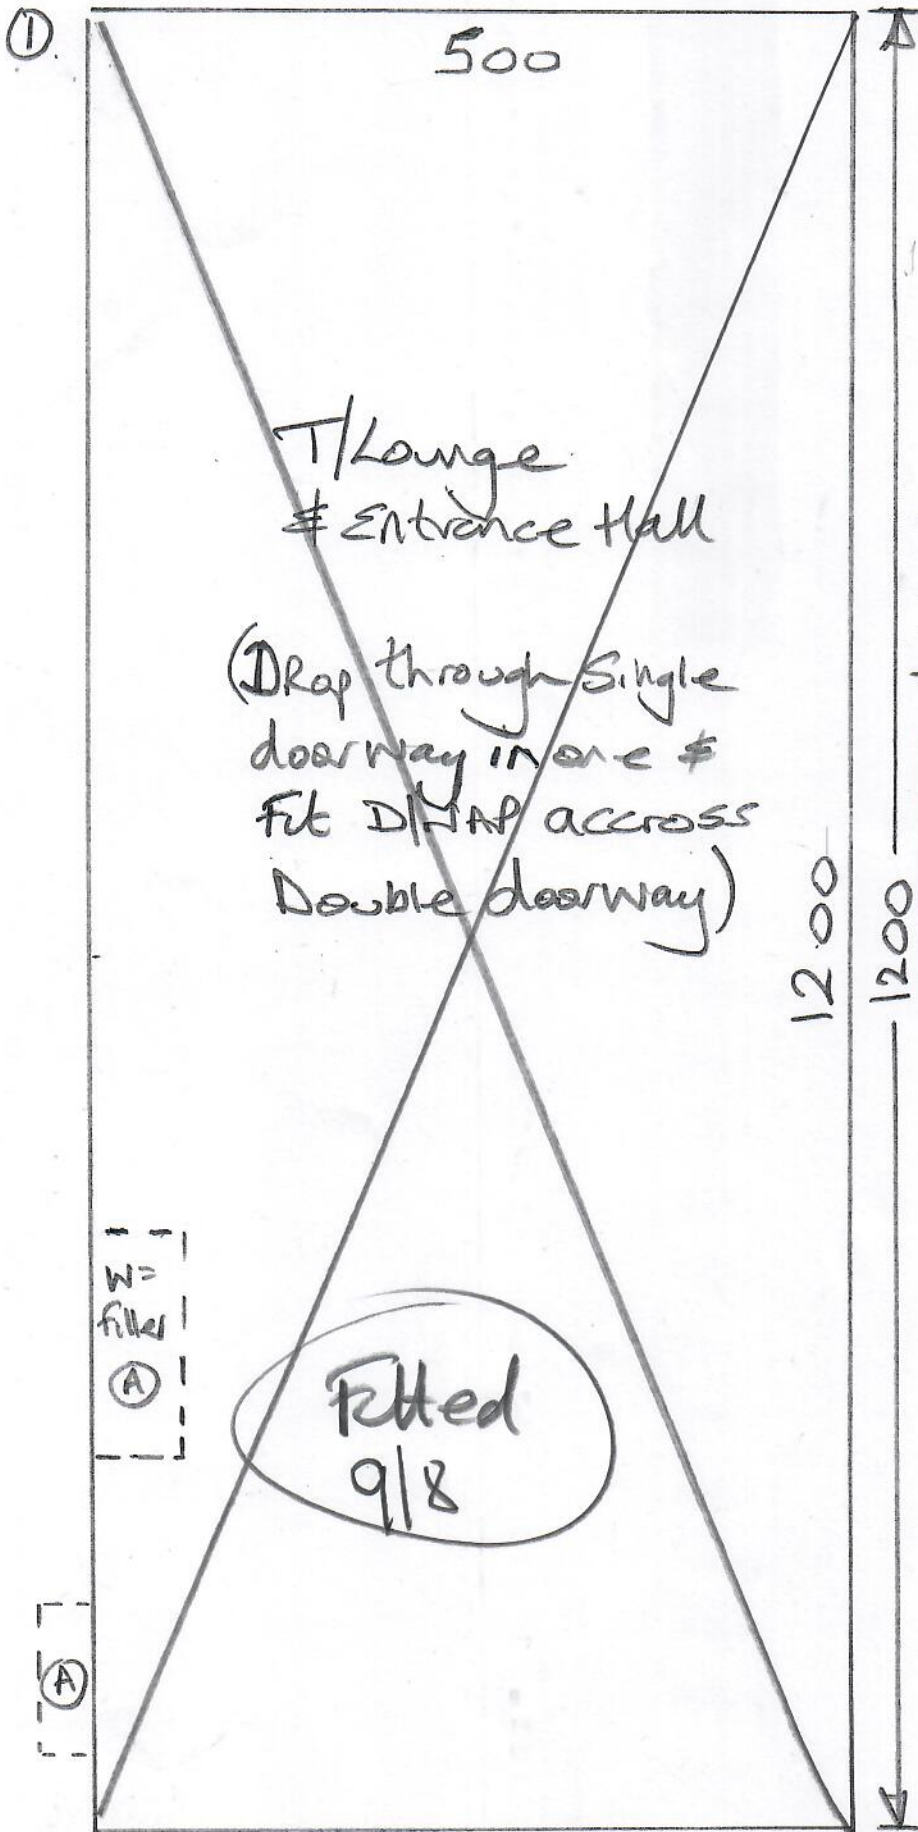 ①
500
T/Lounge
& Entrance Hall
(DRop through Single
doorway in one &
Fit D/NAP accross
Double doorway)
1200
1200
W=
filler
Ⓐ
Fitted
9/8
Ⓐ